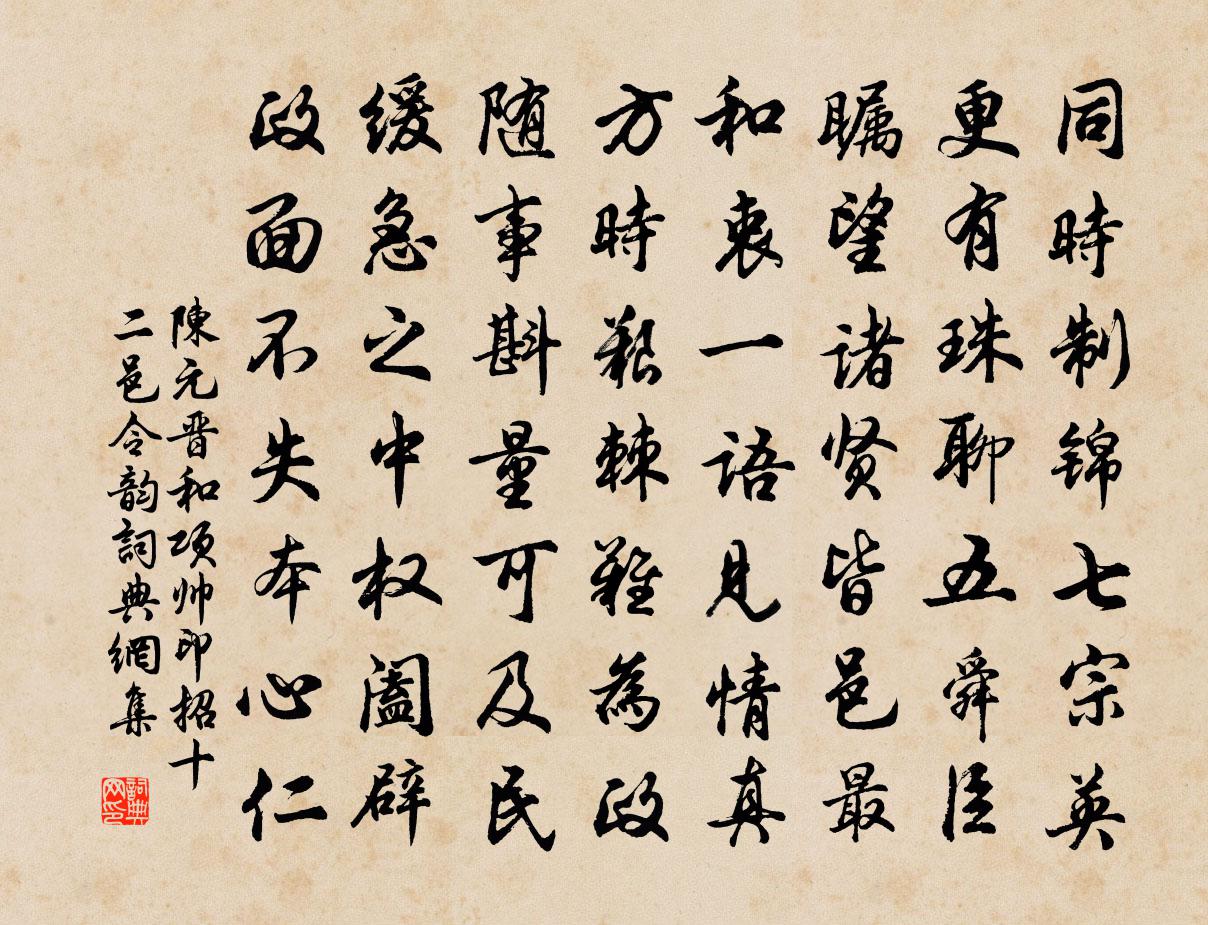 同時制锦七宗英
更有珠聊五舜臣
瞩望諸贤皆邑最
和衷一語見情真
方時艱棘難為政
随事斟量可及民
缓急之中权阖辟
政面不失本心仁
陳元晋和项帅印招十
二邑令韵詞典網集
詞典网印